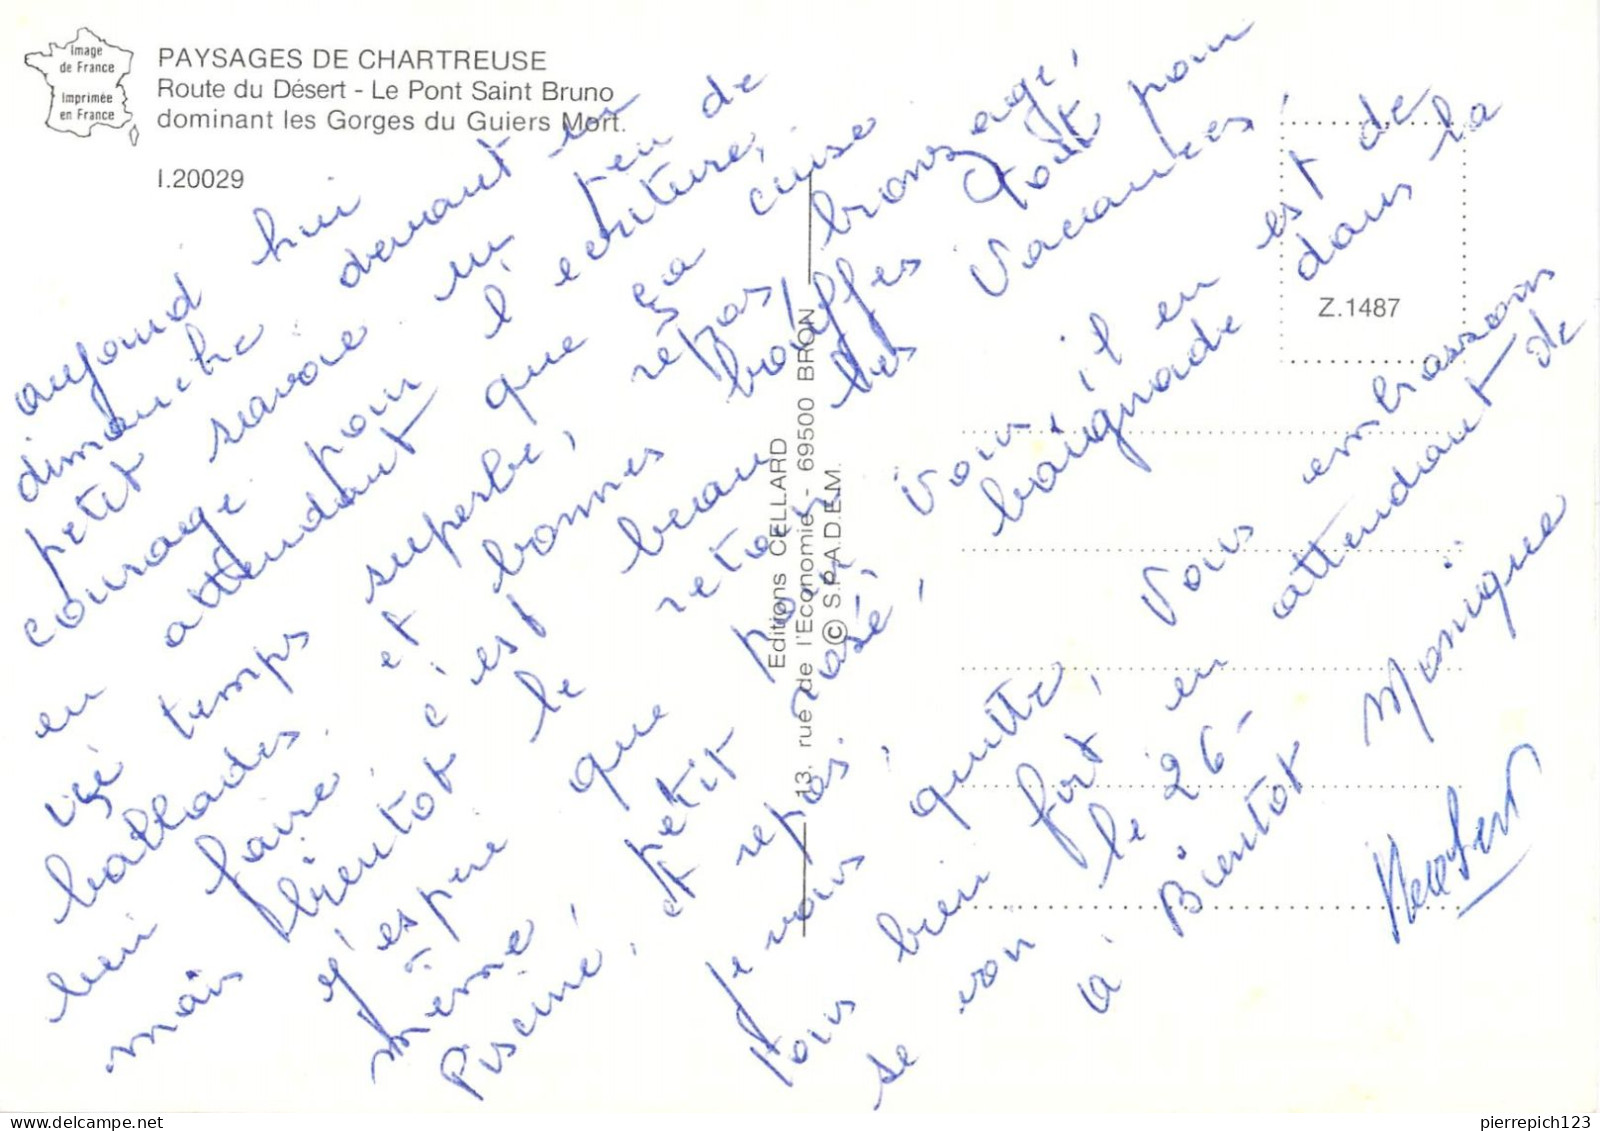 Image
de France
Imprimée
en France
PAYSAGES DE CHARTREUSE
Route du Désert - Le Pont Saint Bruno
dominant les Gorges du Guiers Mort.
I.20029
Z.1487
Editions CELLARD
13, rue de l'Economie - 69500 BRON
© S.P.A.D.E.M.
aujourd hui
dimanche devant un
petit savoie un peu de
courage pour l'ecriture,
en attendant que ça cuise
ici temps superbe, repas, bronzage,
ballades, et bonnes bouffes tout pour
bien faire, c'est beau les vacances
mais bientot le retour
j'espere que pour voir, il en est de
même, petit rosé, baignade dans la
Piscine, et repos.
Je vous quitte, vous embrassons
tous bien fort en attendant de
se voir le 26-
a Bientot Monique